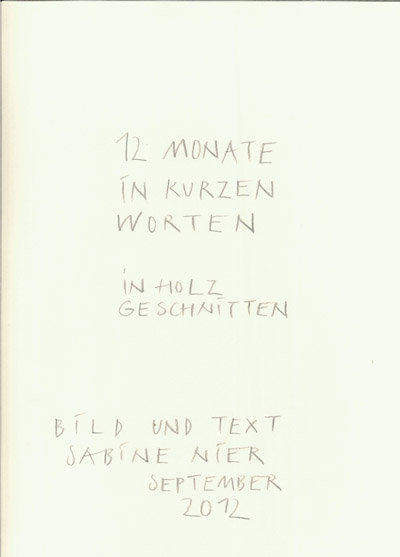 12 MONATE
iN KURZEN
WORTEN
iN HOLZ
GESCHNiTTEN
BiLD UND TEXT
SABiNE NiER
SEPTEMBER
2012